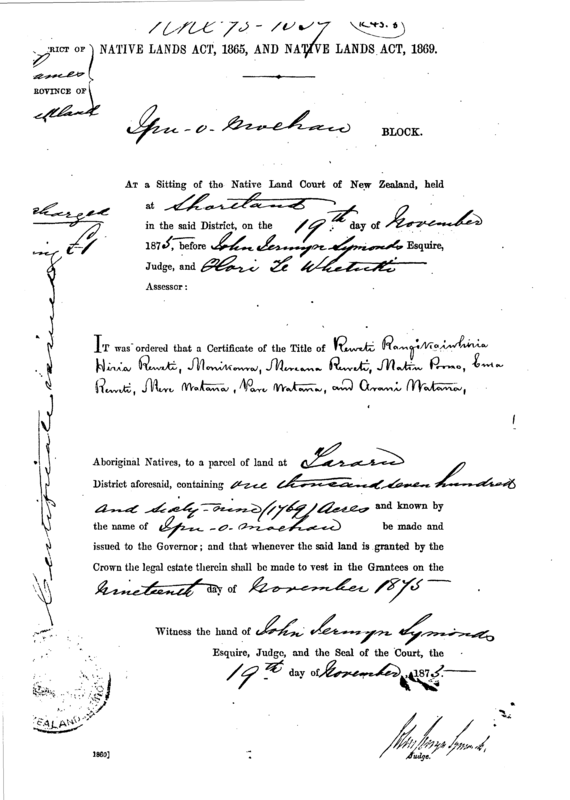 RICT OF
NATIVE LANDS ACT, 1865, AND NATIVE LANDS ACT, 1869.
ames
ROVINCE OF
Ipu-o-Moehau BLOCK.
AT a Sitting of the Native Land Court of New Zealand, held
at Shortland
in the said District, on the 19th day of November
1875, before John Jermyn Symonds Esquire,
Judge, and Hori Te Whetuki
Assessor:
charged
£1
Certificate issued
IT was ordered that a Certificate of the Title of Reweti
Hiria Reweti, Mereana Reweti, Ema
Reweti, Mere Watana, Pare Watana, and Arani Watana,
Aboriginal Natives, to a parcel of land at Tararu
District aforesaid, containing one thousand seven hundred
and sixty-nine (1769) Acres and known by
the name of Ipu-o-moehau be made and
issued to the Governor; and that whenever the said land is granted by the
Crown the legal estate therein shall be made to vest in the Grantees on the
Nineteenth day of November 1875
Witness the hand of John Jermyn Symonds
Esquire, Judge, and the Seal of the Court, the
19th day of November 1875
EALAND
John Jermyn Symonds
Judge.
1869]